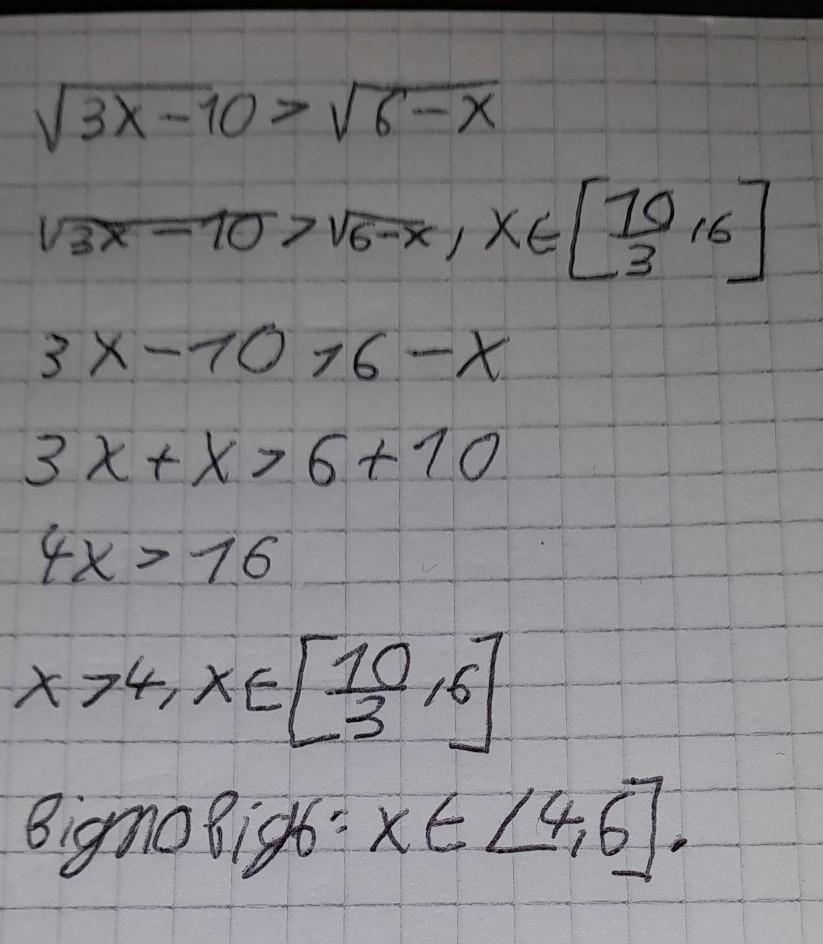 √3x-10 > √6-x
√3x-10 > √6-x, x∈[10/3, 6]
3x-10 > 6-x
3x+x > 6+10
4x > 16
x > 4, x∈[10/3, 6]
відповідь: x∈⟨4, 6].